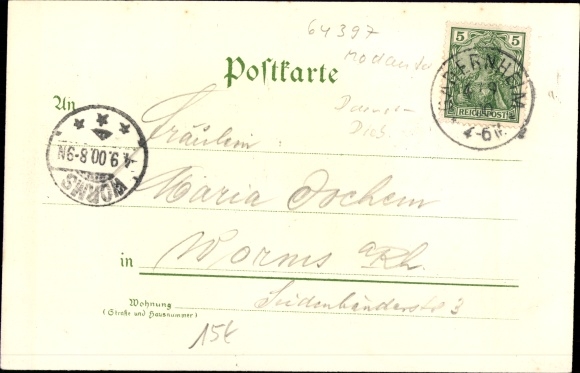 64397
Modautal
5 5
REICHSPOST
4-6N.
Postkarte
An
4.9.00.8-9N
WORMS
Fräulein
Maria Jochem
in Worms a/Rh.
Seidenbänderstr 3
Wohnung
(Straße und Hausnummer)
15€